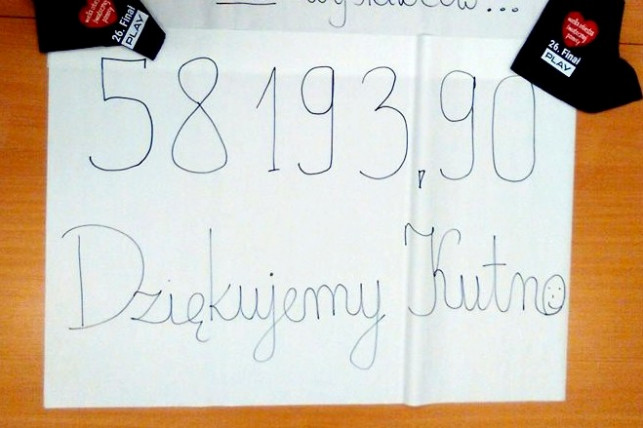 wystawców...
26. Finał
PLAY
26. Finał
PLAY
58 193,90
Dziękujemy Kutno